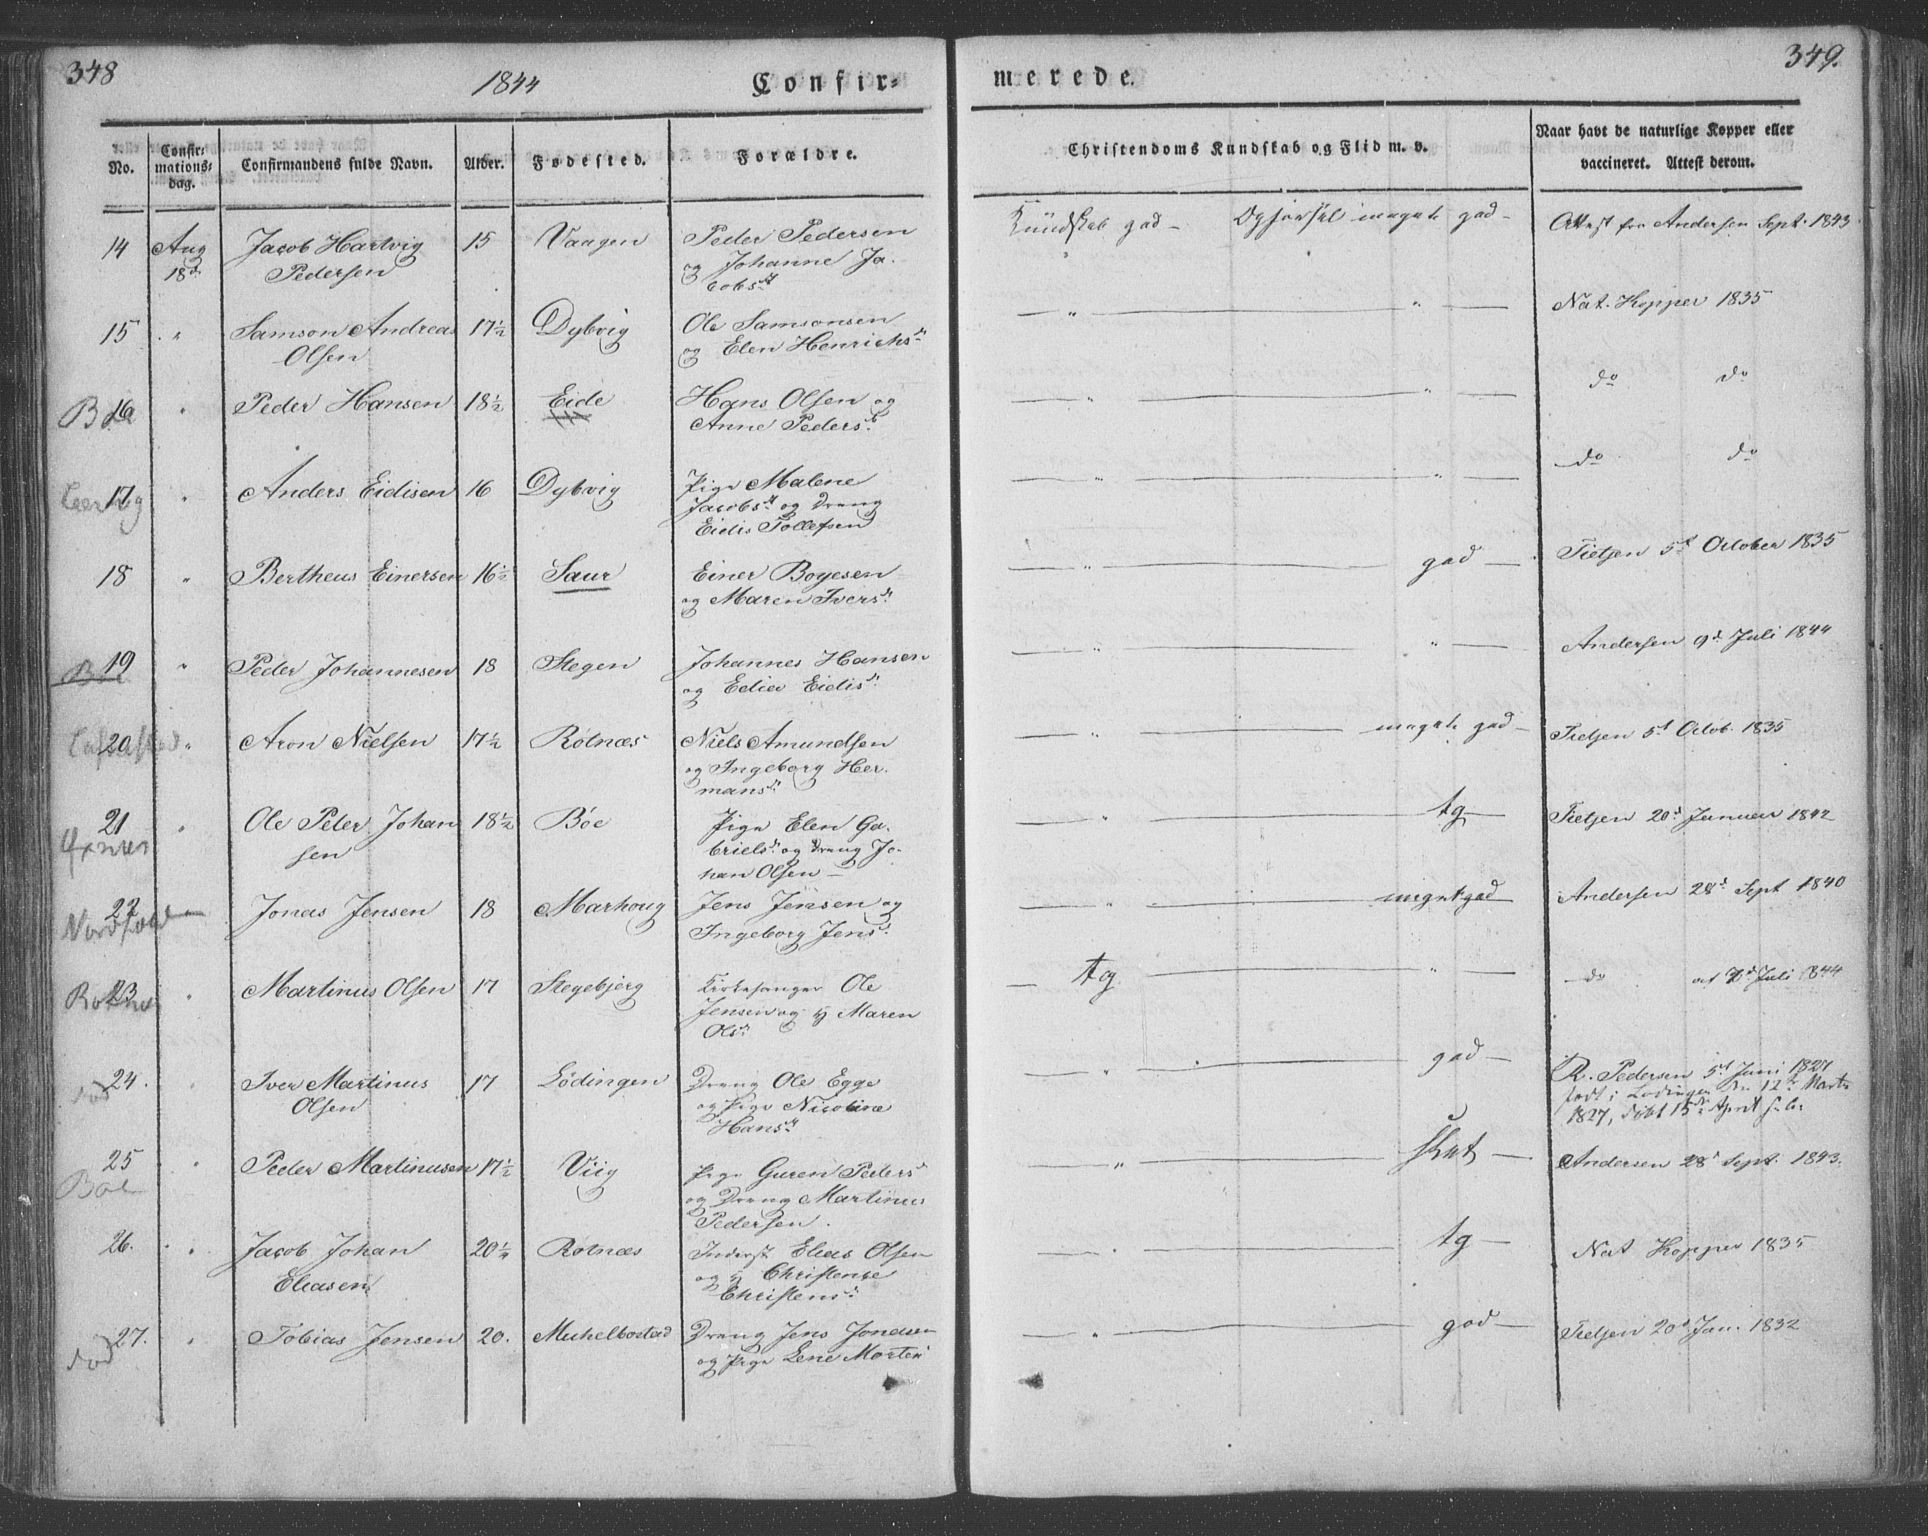 348
1844
Confir=
No.
Confir-
mations-
dag.
Confirmandens fulde Navn.
Alder.
Fødested.
Forældre.
14
Aug
18d
Jacob Hartvig
Pedersen
15
Vaagen
Peder Pedersen
og Johanne Ja-
cobsdt
15
"
Samson Andreas
Olsen
17½
Dybvig
Ole Samsonsen
og Elen Henrichsdt
Bøe
16
"
Peder Hansen
18½
Eide
Hans Olsen og
Anne Pedersdt
17
"
Anders Eidisen
16
Dybvig
Pige Malene
Jacobsdt og Dreng
Eidis Tollefsen
18
"
Bertheus Einersen
16½
Saur
Einer Boyesen
og Maren Iversdt
19
"
Peder Johannesen
18
Stegen
Johannes Hansen
og Edier Eidisdt
20
"
Aron Nielsen
17½
Rotnæs
Niels Amundsen
og Ingeborg Her-
mansdt
21
"
Ole Peter Johan
sen
18½
Böe
Pige Elen Ga-
brielsdt og Dreng Jo-
han Olsen —
22
Jonas Jensen
18
Marhoug
Jens Jensen og
Ingeborg Jensdt
23
"
Martinus Olsen
17
Stegebjerg
Kirkesanger Ole
Jensen og H Maren
Olsdt
24.
"
Iver Martinus
Olsen
17
Lödingen
Dreng Ole Egge
og Pige Nicoline
Hansdt
Bøe
25
"
Peder Martinusen
17½
Viig
Pige Guren Pedersdt
og Dreng Martinus
Pedersen.
26.
"
Jacob Johan
Eliasen
20¼
Rotnæs
Inderst Elias Olsen
og H Christense
Christensdt
27.
"
Tobias Jensen
20.
Michelbostad
Dreng Jens Jonasen
og Pige Lene Morten
349.
merede.
Christendoms Kundskab og Flid m. v.
Naar havt de naturlige Kopper eller
vaccineret. Attest derom.
Kundskab god — Opførsel meget god —
Attest fra Andersen Sept. 1843
— " — " —
Nat. Kopper 1835
— " — " —
do do
— " — " —
do do
— " — god —
Tietjen 5t October 1835
— " — " —
Andersen 9d Juli 1844
— " — meget god —
Tietjen 5t Octob. 1835
— " — tg —
Tietjen 20d Januar 1842
— " — meget god
Andersen 28d Sept 1840
— tg — " —
do Juli 1844
— " — god —
R. Pedersen 5t Juni 1827
født i Lodingen den 12te Marts
1827, döbt 15de April
— " — slet —
Andersen 28d Sept. 1843.
— " — tg —
Nat Kopper 1835
— " — god —
Tietjen 20d Jan. 1832